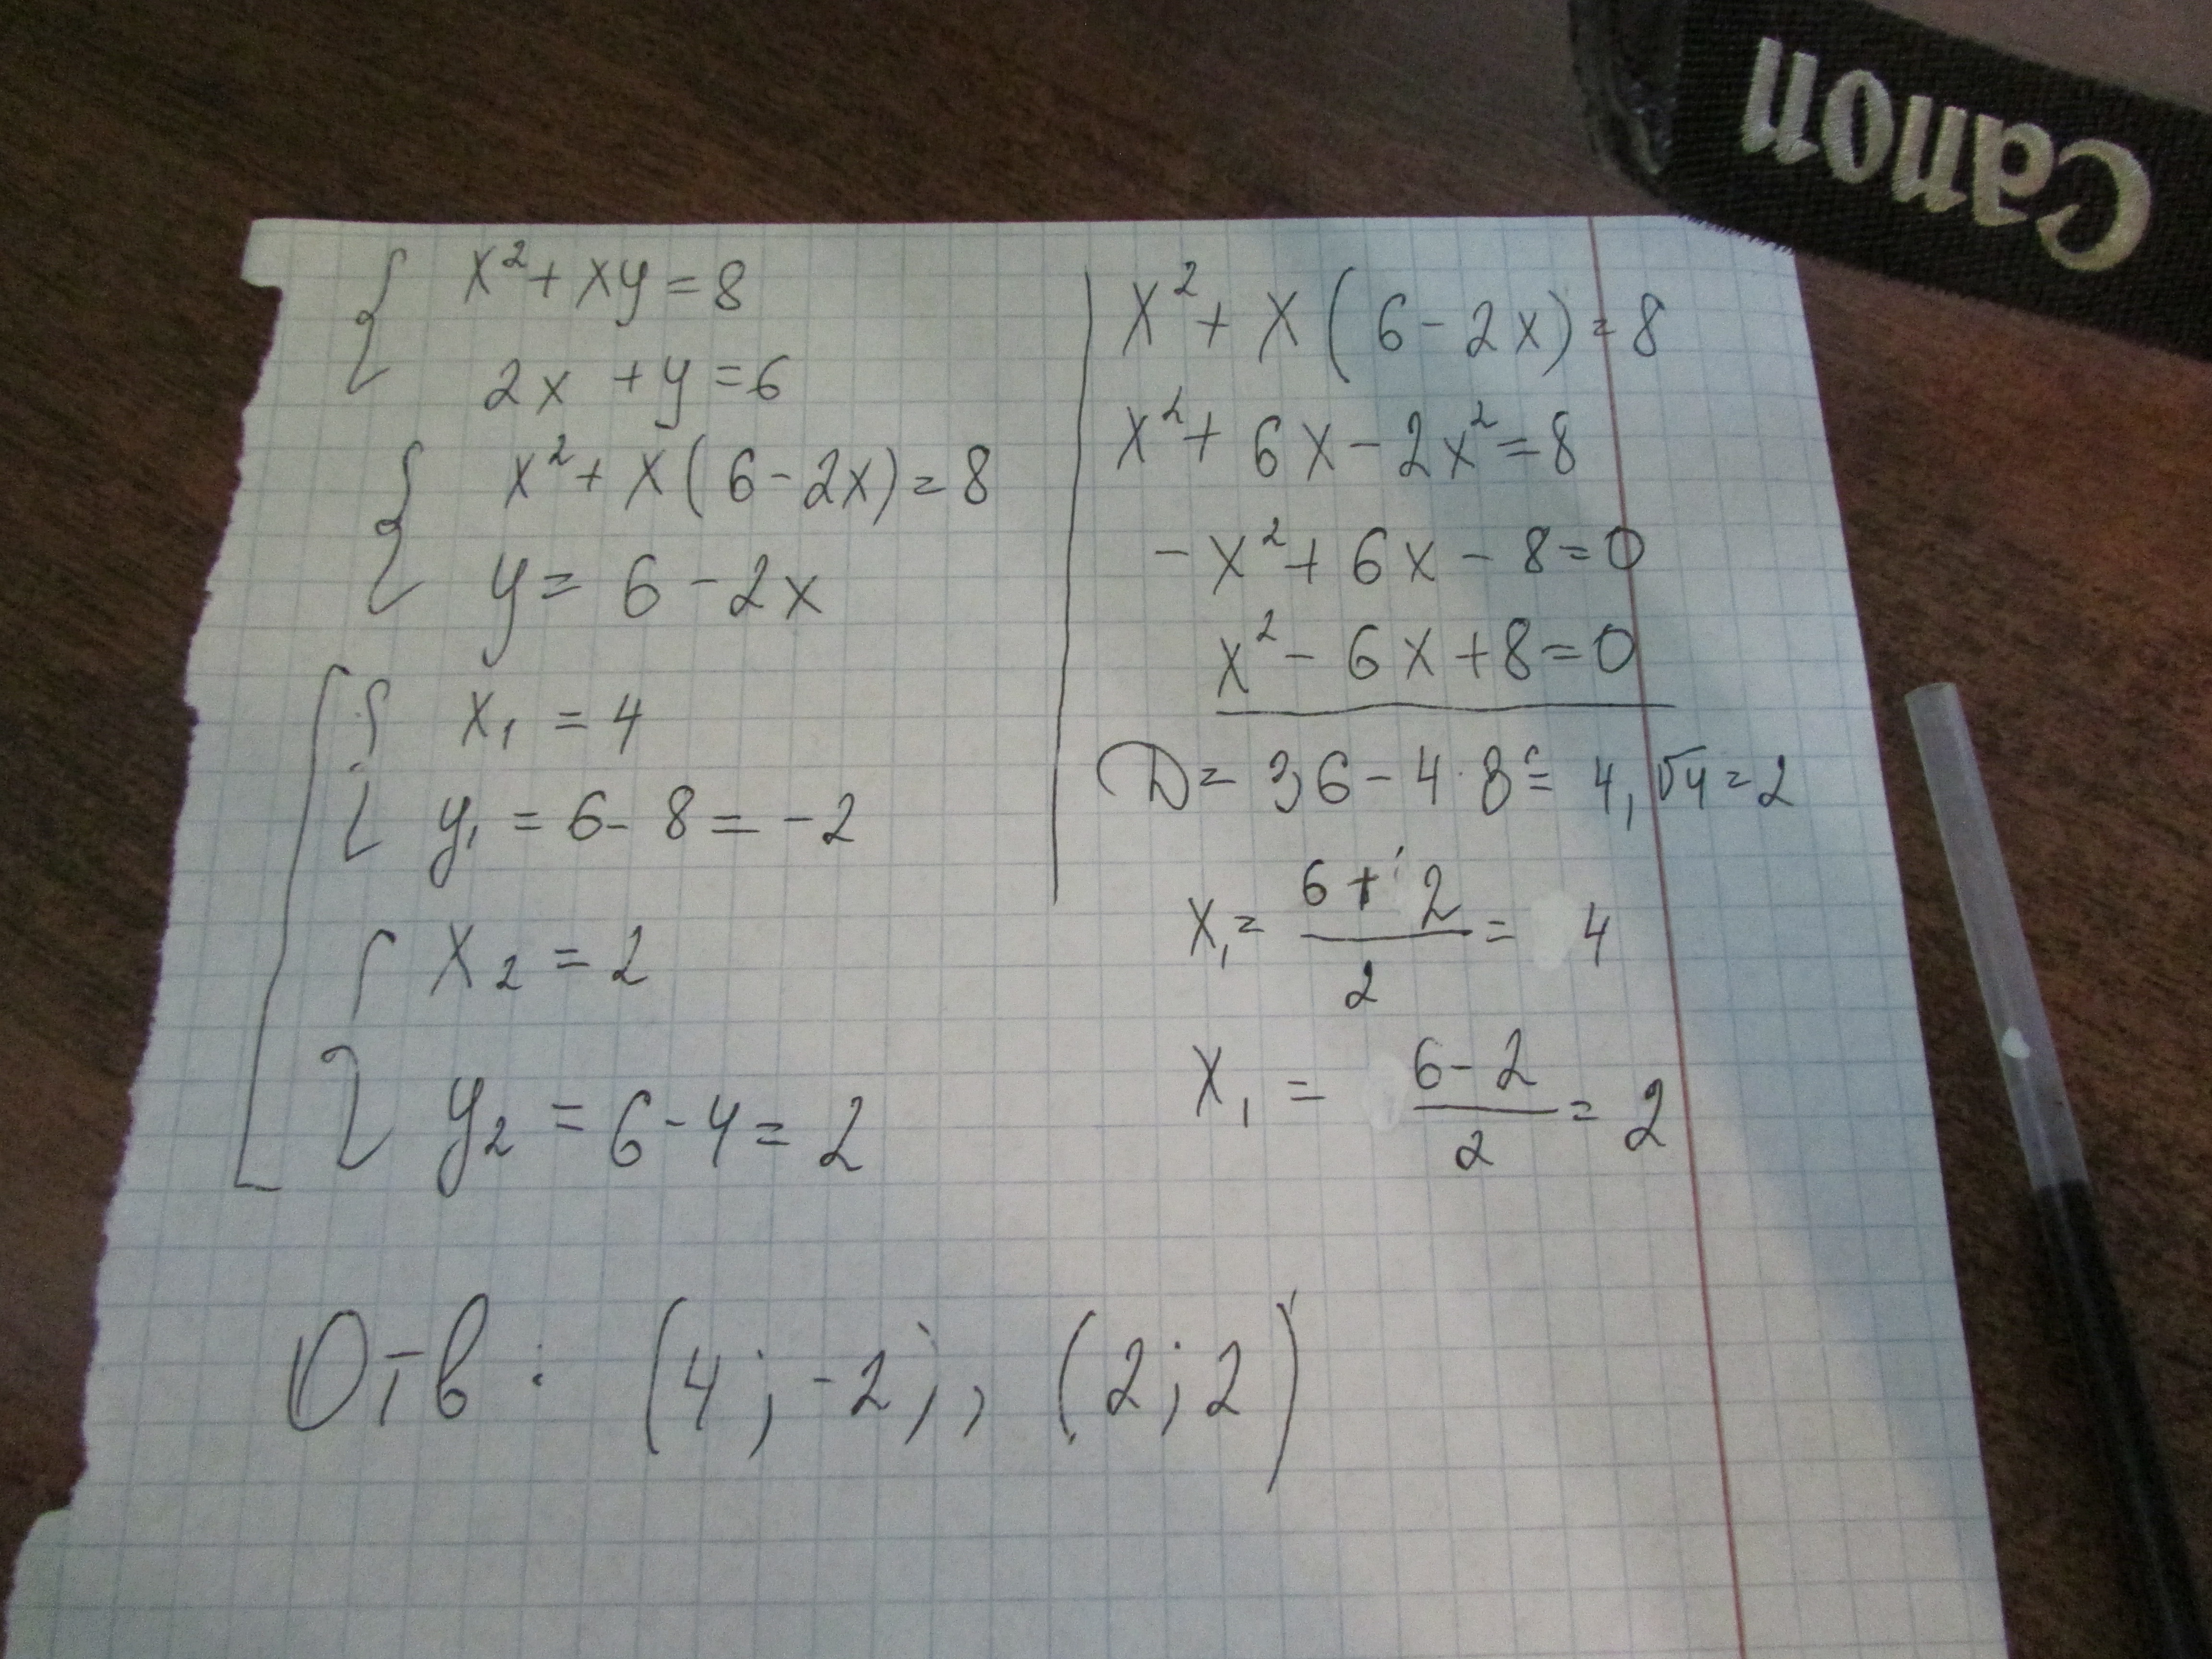 Canon
x² + xy = 8
2x + y = 6
x² + x(6 - 2x) = 8
y = 6 - 2x
x₁ = 4
y₁ = 6 - 8 = -2
x₂ = 2
y₂ = 6 - 4 = 2
x² + x(6 - 2x) = 8
x² + 6x - 2x² = 8
-x² + 6x - 8 = 0
x² - 6x + 8 = 0
D = 36 - 4·8 = 4, √4 = 2
x₁ = (6 + 2)/2 = 4
x₁ = (6 - 2)/2 = 2
Отв: (4; -2), (2; 2)